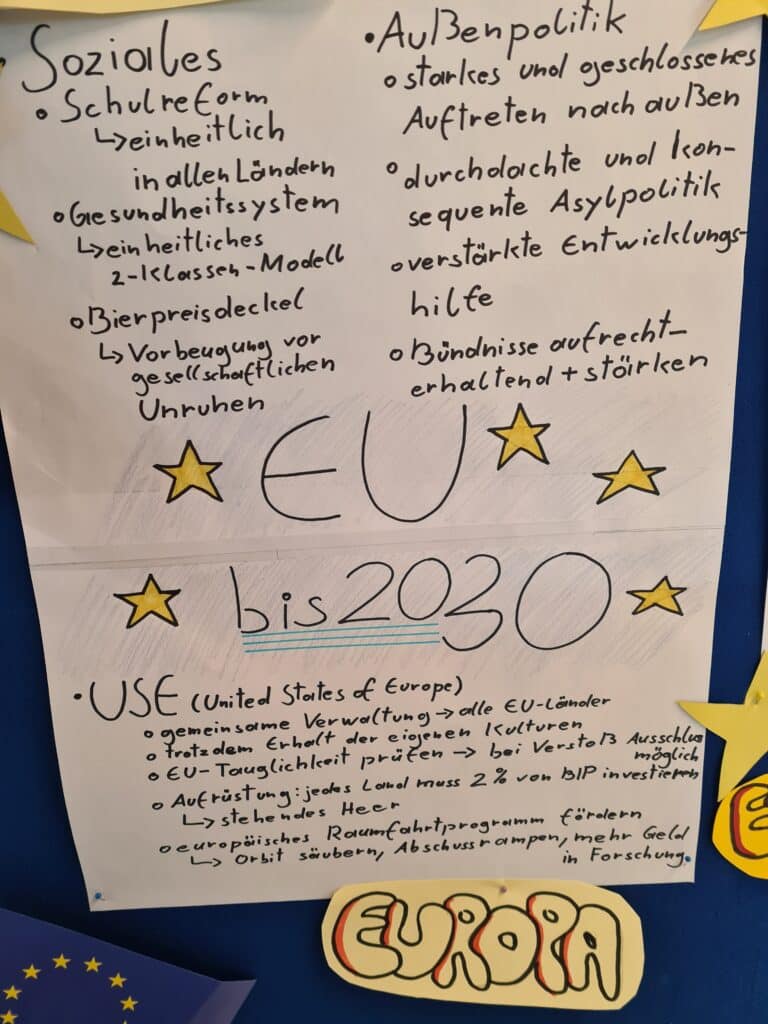 Soziales
• Schulreform
↳ einheitlich
in allen Ländern
• Gesundheitssystem
↳ einheitliches
2-Klassen-Modell
• Bierpreisdeckel
↳ Vorbeugung vor
gesellschaftlichen
Unruhen
• Außenpolitik
• starkes und geschlossenes
Auftreten nach außen
• durchdachte und kon-
sequente Asylpolitik
• verstärkte Entwicklungs-
hilfe
• Bündnisse aufrecht-
erhaltend + stärken
EU
bis 2030
• USE (United States of Europe)
• gemeinsame Verwaltung → alle EU-Länder
• trotzdem Erhalt der eigenen Kulturen
• EU-Tauglichkeit prüfen → bei Verstoß Ausschluss
möglich
• Aufrüstung: jedes Land muss 2% von BIP investieren
↳ stehendes Heer
• europäisches Raumfahrtprogramm fördern
↳ Orbit säubern, Abschussrampen, mehr Geld
in Forschung.
EUROPA